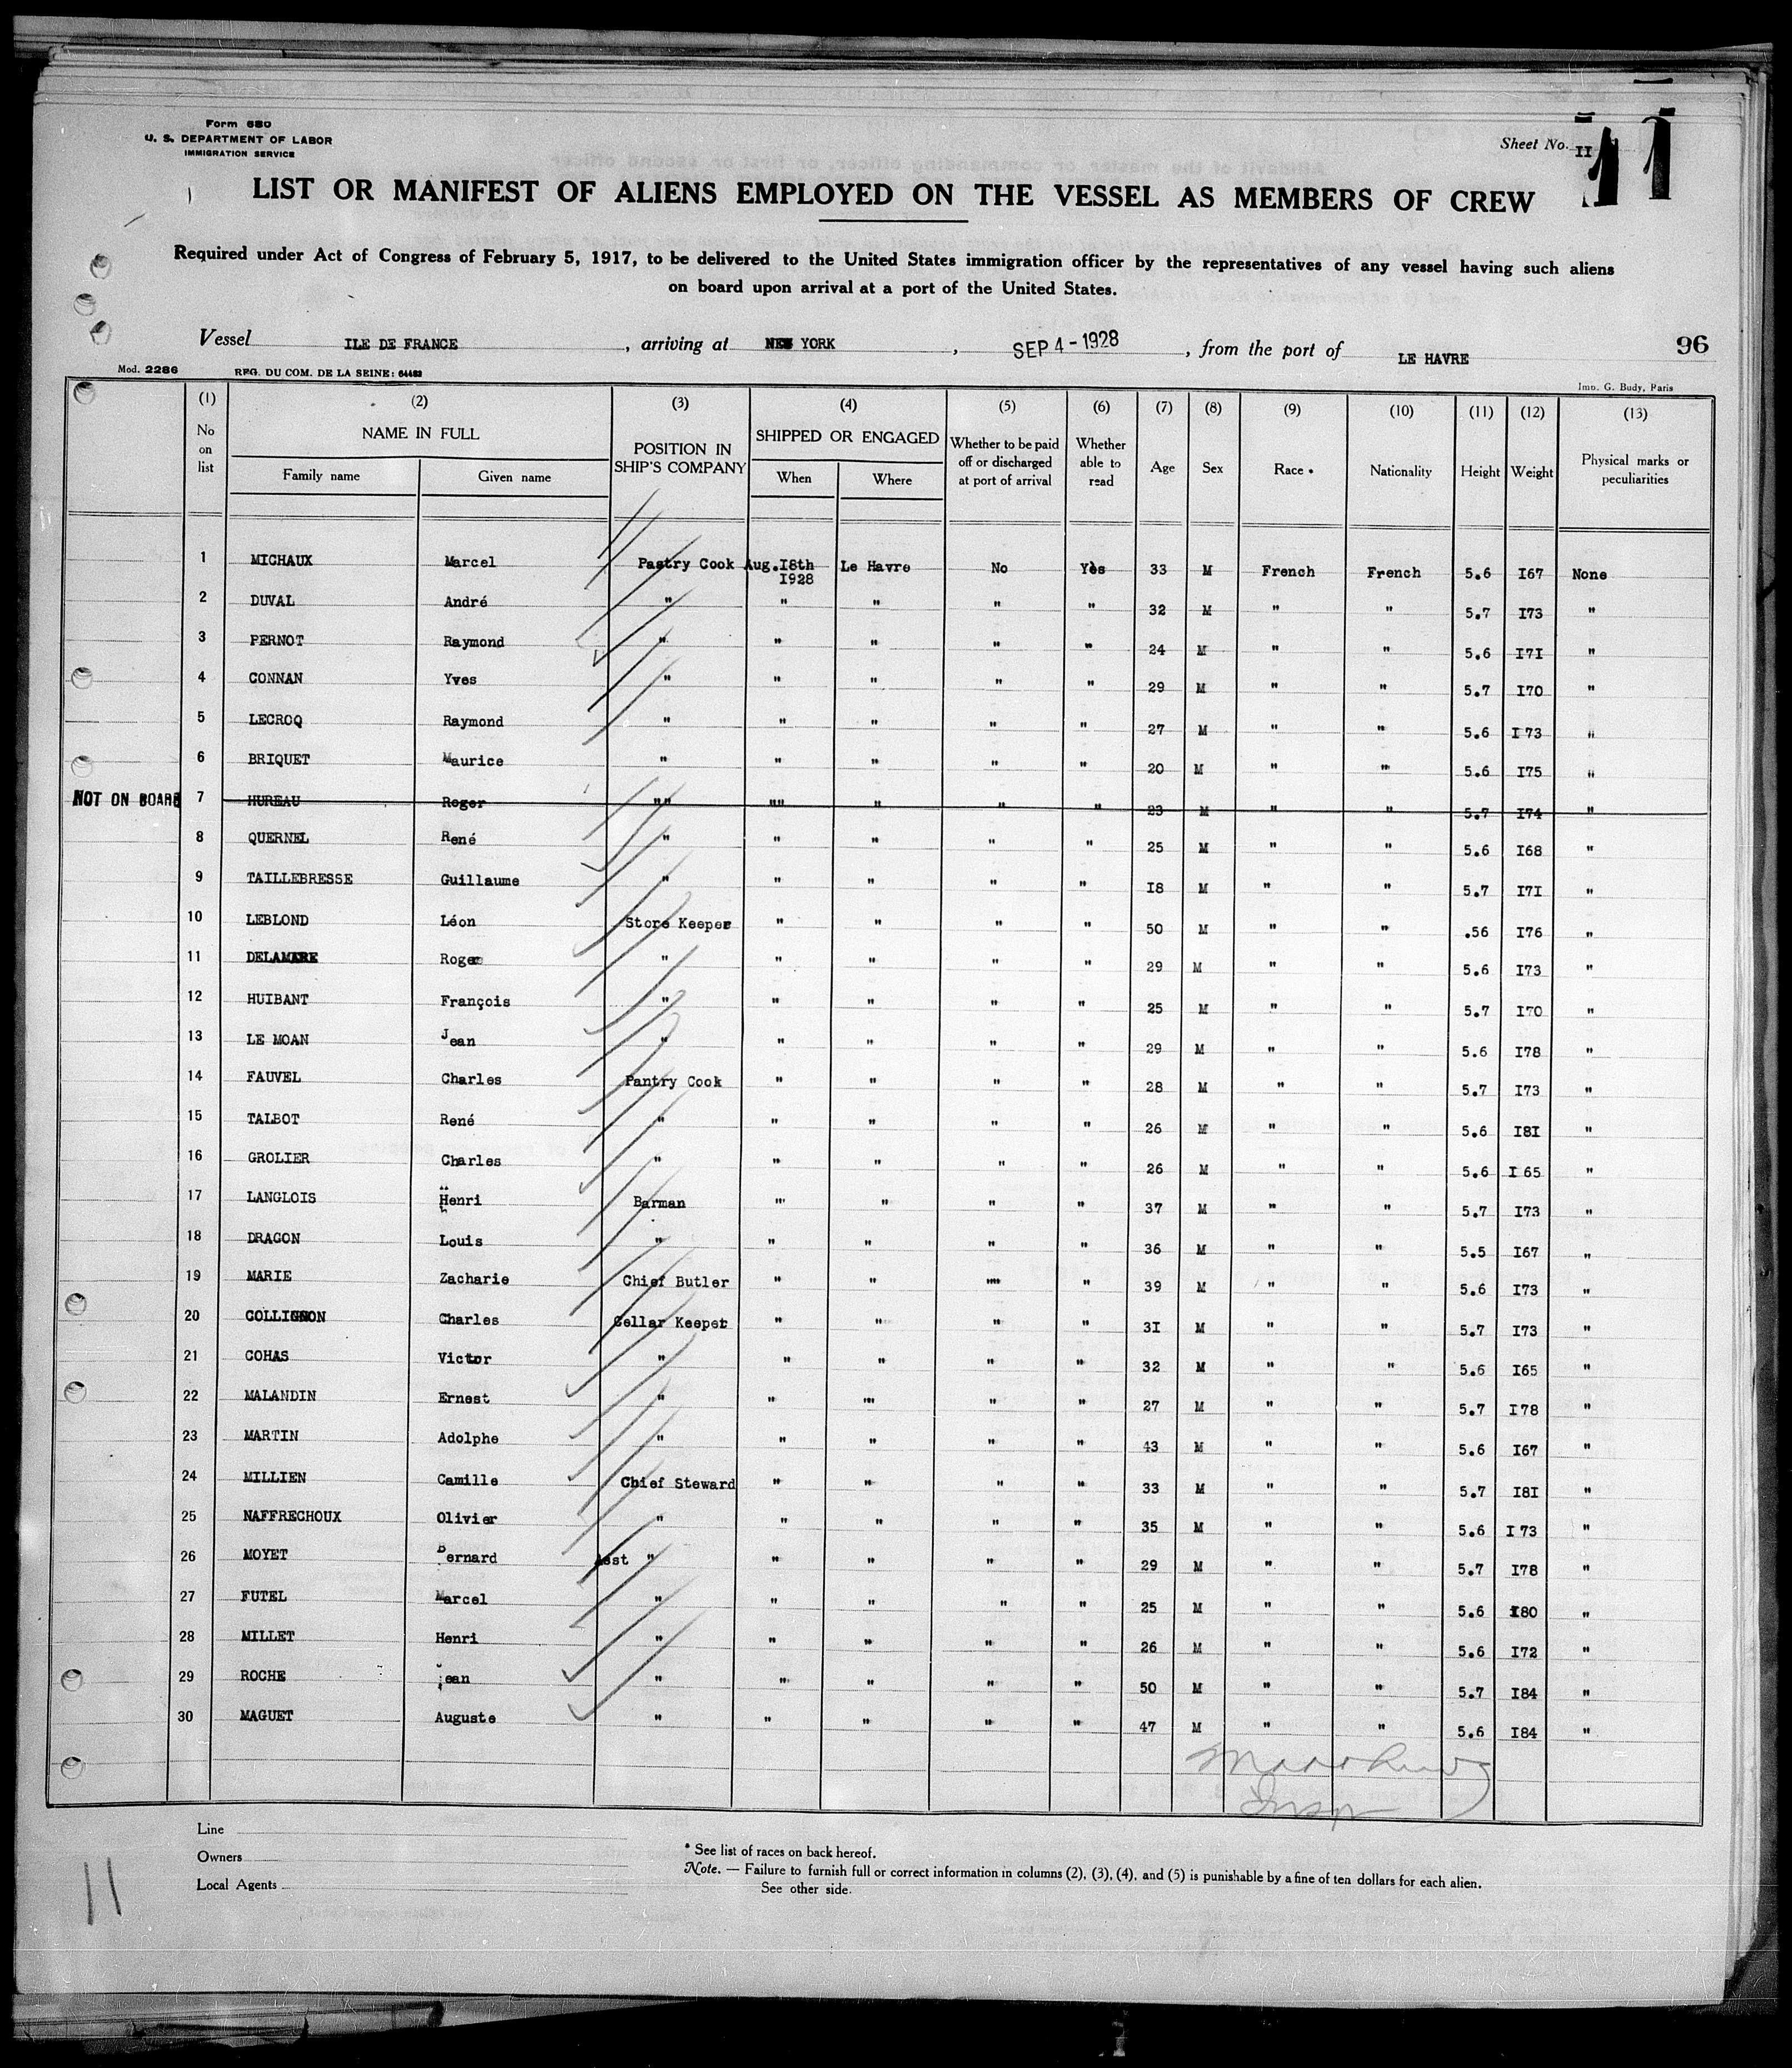 Form 680
U. S. DEPARTMENT OF LABOR
IMMIGRATION SERVICE
Sheet No. II 11
LIST OR MANIFEST OF ALIENS EMPLOYED ON THE VESSEL AS MEMBERS OF CREW
Required under Act of Congress of February 5, 1917, to be delivered to the United States immigration officer by the representatives of any vessel having such aliens
on board upon arrival at a port of the United States.
Vessel ILE DE FRANCE, arriving at NEW YORK, SEP 4-1928, from the port of LE HAVRE
96
Mod. 2286 REG. DU COM. DE LA SEINE: 64483
Imp. G. Budy, Paris
(1) (2) (3) (4) (5) (6) (7) (8) (9) (10) (11) (12) (13)
No on list NAME IN FULL Family name Given name POSITION IN SHIP'S COMPANY SHIPPED OR ENGAGED When Where Whether to be paid off or discharged at port of arrival Whether able to read Age Sex Race * Nationality Height Weight Physical marks or peculiarities
1 MICHAUX Marcel Pastry Cook Aug.I8th I928 Le Havre No Yès 33 M French French 5.6 I67 None
2 DUVAL André " " " " " 32 M " " 5.7 I73 "
3 PERNOT Raymond " " " " " 24 M " " 5.6 I7I "
4 CONNAN Yves " " " " " 29 M " " 5.7 I70 "
5 LECROQ Raymond " " " " " 27 M " " 5.6 I 73 "
6 BRIQUET Maurice " " " " " 20 M " " 5.6 I75 "
NOT ON BOARD 7 HUREAU Roger "" "" " " " 23 M " " 5.7 I74 "
8 QUERNEL René " " " " " 25 M " " 5.6 I68 "
9 TAILLEBRESSE Guillaume " " " " " I8 M " " 5.7 I7I "
10 LEBLOND Léon Store Keeper " " " " 50 M " " .56 I76 "
11 DELAMARE Roger " " " " " 29 M " " 5.6 I73 "
12 HUIBANT François " " " " " 25 M " " 5.7 I70 "
13 LE MOAN Jean " " " " " 29 M " " 5.6 I78 "
14 FAUVEL Charles Pantry Cook " " " " 28 M " " 5.7 I73 "
15 TALBOT René " " " " " 26 M " " 5.6 I8I "
16 GROLIER Charles " " " " " 26 M " " 5.6 I 65 "
17 LANGLOIS Henri Barman " " " " 37 M " " 5.7 I73 "
18 DRAGON Louis " " " " " 36 M " " 5.5 I67 "
19 MARIE Zacharie Chief Butler " " "" " 39 M " " 5.6 I73 "
20 COLLIGNON Charles Cellar Keeper " " " " 3I M " " 5.7 I73 "
21 COHAS Victor " " " " " 32 M " " 5.6 I65 "
22 MALANDIN Ernest " " " " " 27 M " " 5.7 I78 "
23 MARTIN Adolphe " " " " " 43 M " " 5.6 I67 "
24 MILLIEN Camille Chief Steward " " " " 33 M " " 5.7 I8I "
25 NAFFRECHOUX Olivier " " " " " 35 M " " 5.6 I 73 "
26 MOYET Bernard Asst " " " " " 29 M " " 5.7 I78 "
27 FUTEL Marcel " " " " " 25 M " " 5.6 I80 "
28 MILLET Henri " " " " " 26 M " " 5.6 I72 "
29 ROCHE jean " " " " " 50 M " " 5.7 I84 "
30 MAGUET Auguste " " " " " 47 M " " 5.6 I84 "
Line
Owners
Local Agents
* See list of races on back hereof.
Note. — Failure to furnish full or correct information in columns (2), (3), (4), and (5) is punishable by a fine of ten dollars for each alien.
See other side.
11